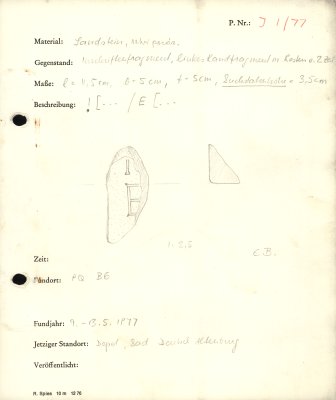 P. Nr.: I 1/77
Material: Sandstein,
Gegenstand: Inschriftenfragment, linkes Randfragment m. Resten v. 2 Zeilen
Maße: h = 4,5cm, b = 5cm, t = 5cm, Buchstabenhöhe = 3,5cm
Beschreibung: I [--- / E [---
I
E
1:2,5
E.B.
Zeit:
Fundort: PQ BE
Fundjahr: 9. - 13.5.1977
Jetziger Standort: Depot, Bad Deutsch Altenburg
Veröffentlicht:
R. Spies 10 m 12 76